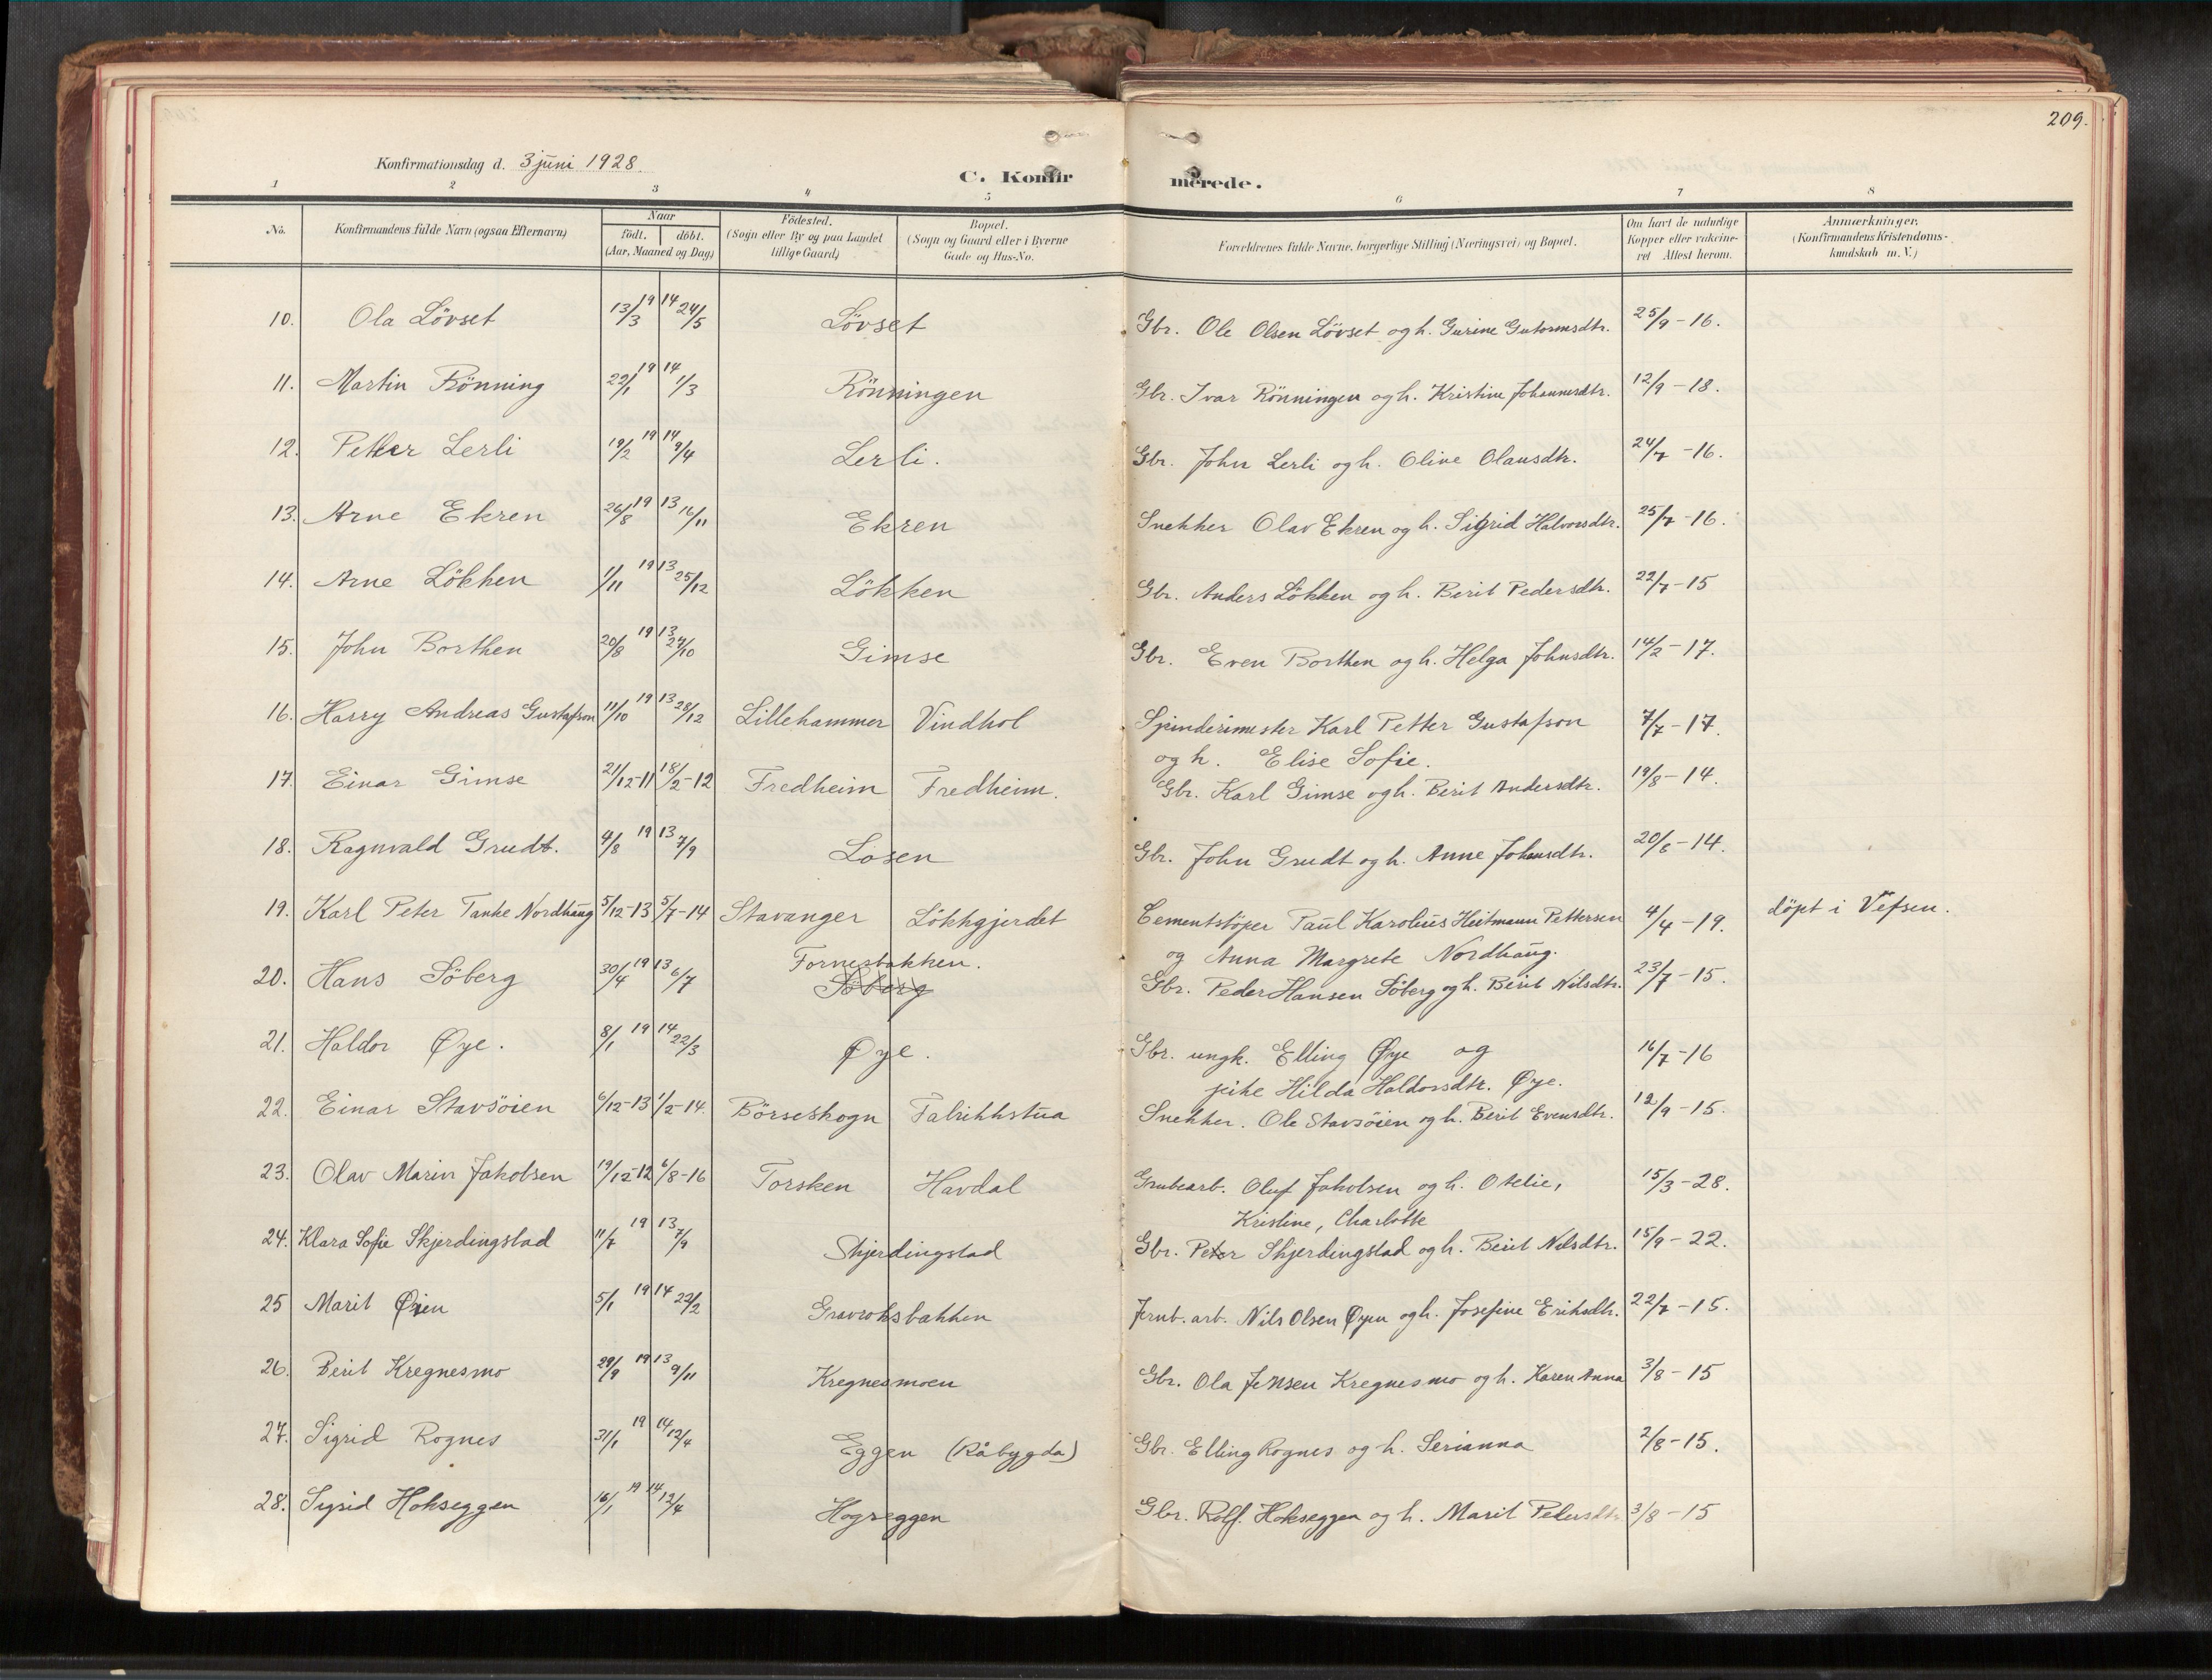 209.
Konfirmationsdag d. 3 juni 1928.
C. Konfirmerede.
1 2 3 4 5 6 7 8
No. Konfirmandens fulde Navn (ogsaa Efternavn) Naar født. døbt. (Aar, Maaned og Dag) Fødested. (Sogn eller By og paa Landet tillige Gaard) Bopæl. (Sogn og Gaard eller i Byerne Gade og Hus-No. Forældrenes fulde Navne, borgerlige Stilling (Næringsvei) og Bopæl. Om havt de naturlige Kopper eller vakcineret Attest herom. Anmærkninger. (Konfirmandens Kristendomskundskab m. V.)
10. Ola Lövset 13/3 19 14 24/5 Lövset Gbr. Ole Olsen Lövset og h. Gurine Gutormsdtr. 25/9-16.
11. Martin Rönning 22/1 19 14 1/3 Rönningen Gbr. Ivar Rönningen og h. Kristine Johannesdtr. 12/9-18.
12. Petter Lerli 19/2 19 14 9/4 Lerli. Gbr. John Lerli og h. Olive Olausdtr. 24/7-16.
13. Arne Ekren 26/8 19 13 16/11 Ekren Snekker Olav Ekren og h. Sigrid Halvorsdtr. 25/7-16.
14. Arne Lökken 1/11 19 13 25/12 Lökken Gbr. Anders Lökken og h. Berit Pedersdtr. 22/7-15
15. John Borthen 20/8 19 13 24/10 Gimse Gbr. Even Borthen og h. Helga Johnsdtr. 14/2-17.
16. Harry Andreas Gustafson 11/10 19 13 28/12 Lillehammer Vindhol Spinderimester Karl Petter Gustafson 7/7-17.
og h. Elise Sofie.
17. Einar Gimse 21/12-11 18/2-12 Fredheim Fredheim. Gbr. Karl Gimse og h. Berit Andersdtr. 19/8-14.
18. Ragnvald Grudt. 4/8 19 13 7/9 Losen Gbr. John Grudt og h. Anne Johnsdtr. 20/6-14.
19. Karl Peter Tanke Nordhaug 5/12-13 5/7-14 Stavanger Lökkgjerdet Cementstöper Paul Karolius Heitmann Pettersen 4/4-19. döpt i Vefsen.
og Anna Margrete Nordhaug.
Fornesbakken.
20. Hans Söberg 30/4 19 13 6/7 Söberg Gbr. Peder Hansen Söberg og h. Berit Nilsdtr. 23/7-15.
21. Haldor Øye. 8/1 19 14 22/3 Øye. Gbr. ungk. Elling Øye og 16/7-16
pike Hilda Haldorsdtr. Øye.
22. Einar Stavsöien 6/12-13 1/2-14. Börseskogn Fabrikkstua Snekker. Ole Stavsöien og h. Berit Evensdtr. 12/9-15.
23. Olav Marin Jakobsen 19/12-12 6/8-16 Torsken Havdal Grubearb. Oluf Jakobsen og h. Otelie, 15/3-28.
Kristine, Charlotte
24. Klara Sofie Skjerdingstad 11/7 19 13 7/9 Skjerdingstad Gbr. Peter Skjerdingstad og h. Berit Nilsdtr. 15/9-22.
25 Marit Øien 5/1 19 14 22/2 Gravroksbakken Jernb. arb. Nils Olsen Øyen og h. Josefine Eriksdtr. 22/7-15.
26. Berit Kregnesmo 29/9 19 13 9/11 Kregnesmoen Gbr. Ola Jensen Kregnesmo og h. Karen Anna 3/8-15
27. Sigrid Rognes 31/1 19 14 12/4 Eggen (Råbygda) Gbr. Elling Rognes og h. Serianna 2/8-15.
28. Sigrid Hokseggen 16/1 19 14 12/4 Hogseggen Gbr. Rolf. Hokseggen og h. Marit Pedersdtr. 3/8-15